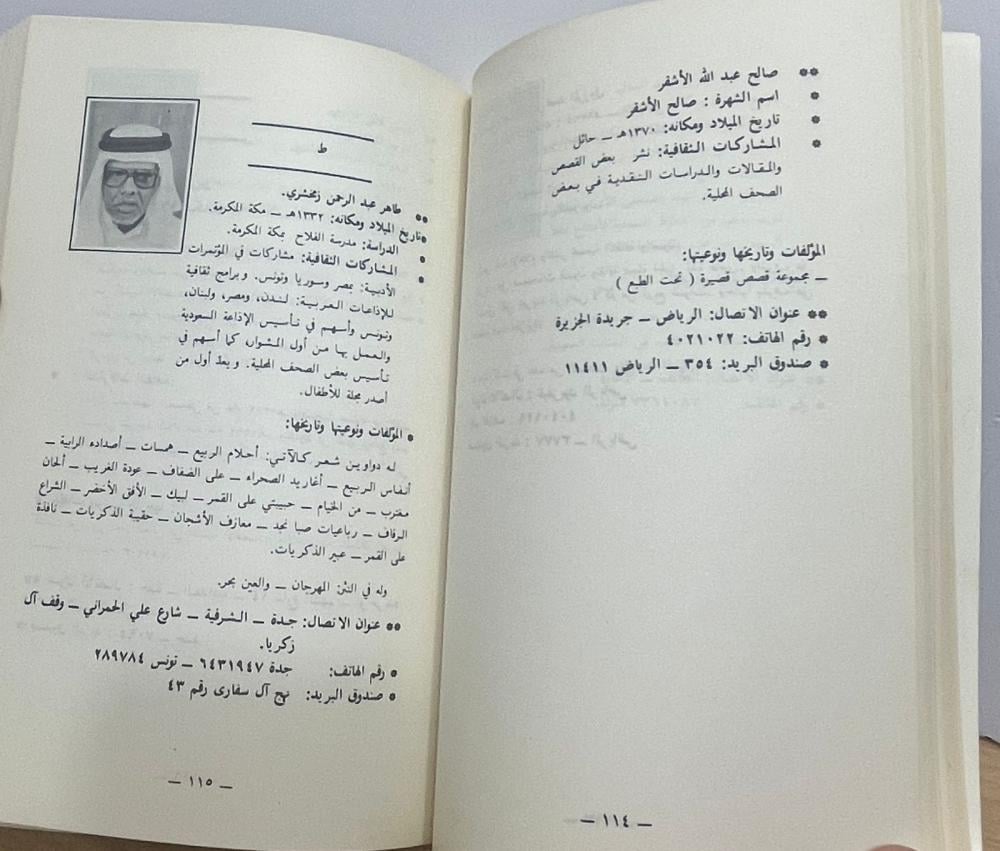 ** صالح عبد الله الأشفر
* اسم الشهرة : صالح الأشفر
* تاريخ الميلاد ومكانه: ١٣٧٠هـ ــ حائل
* المشاركات الثقافية: نشر بعض القصص
والمقالات والدراسات النقدية في بعض
الصحف المحلية.
المؤلفات وتاريخها ونوعيتها:
ــ مجموعة قصص قصيرة ( تحت الطبع )
** عنوان الاتصال: الرياض ــ جريدة الجزيرة
* رقم الهاتف: ٤٠٢١٠٢٢
* صندوق البريد: ٣٥٤ ــ الرياض ١١٤١١
ــ ١١٤ ــ
ط
** طاهر عبد الرحمن زمخشري.
* تاريخ الميلاد ومكانه: ١٣٣٢هـ ــ مكة المكرمة.
* الدراسة: مدرسة الفلاح بمكة المكرمة.
* المشاركات الثقافية: مشاركات في المؤتمرات
الأدبية: بمصر وسوريا وتونس. وبرامج ثقافية
للإذاعات العربية: لندن، ومصر، ولبنان،
وتونس وأسهم في تأسيس الإذاعة السعودية
والعمل بها من أول المشوار، كما أسهم في
تأسيس بعض الصحف المحلية. ويعد أول من
أصدر مجلة للأطفال.
* المؤلفات ونوعيتها وتاريخها:
له دواوين شعر كالآتي: أحلام الربيع ــ همسات ــ أصداء الرابية ــ
أنفاس الربيع ــ أغاريد الصحراء ــ على الضفاف ــ عودة الغريب ــ ألحان
مغترب ــ من الخيام ــ حبيبتي على القمر ــ لبيك ــ الأفق الأخضر ــ الشراع
الرفاف ــ رباعيات صبا نجد ــ معازف الأشجان ــ حقيبة الذكريات ــ نافذة
على القمر ــ عبير الذكريات.
وله في النثر: المهرجان ــ والعين بحر.
** عنوان الاتصال: جدة ــ الشرفية ــ شارع علي الحمراني ــ وقف آل
زكريا.
* رقم الهاتف: جدة ٦٤٣١٩٤٧ ــ تونس ٢٨٩٧٨٤
* صندوق البريد: نهج آل سفارى رقم ٤٣
ــ ١١٥ ــ